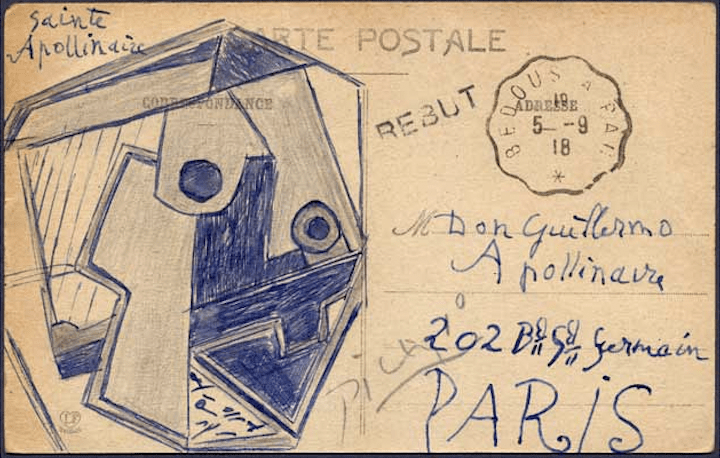 Sainte
Apollinaire
CARTE POSTALE
CORRESPONDANCE
ADRESSE
REBUT
BEDOUS A PAU
19
5 -9
18
M Don Guillermo
Apollinaire
202 Bd St Germain
PARIS
Picasso